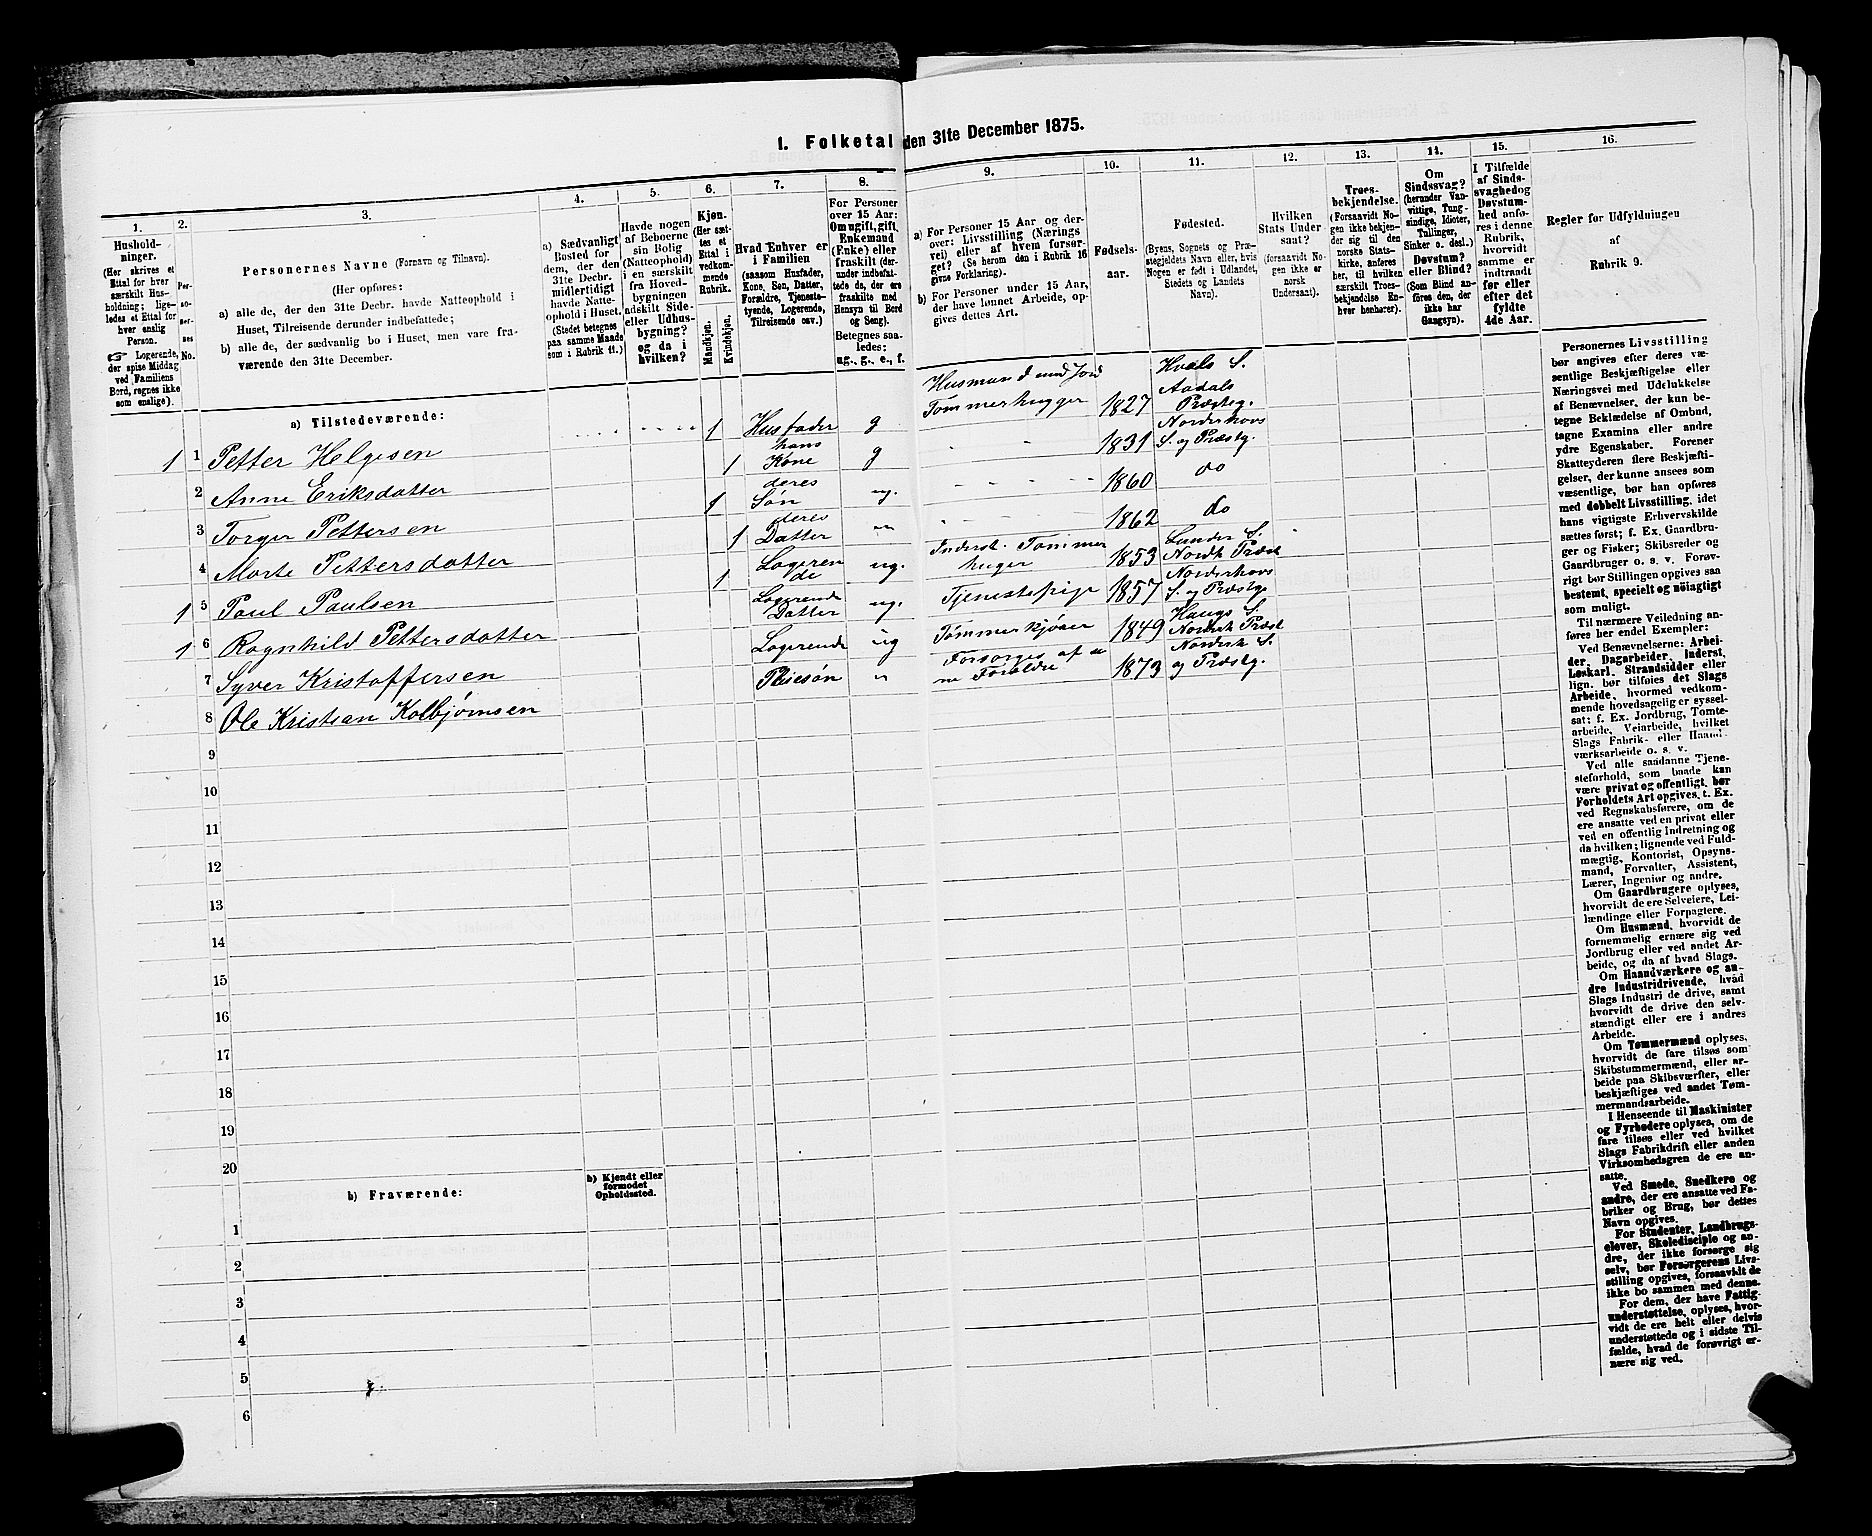 1. Folketal den 31te December 1875.
1.
Hushold-
ninger.
(Her skrives et
Ettal for hver
særskilt Hus-
holdning; lige-
ledes et Ettal for
hver enslig
Person.
☞ Logerende,
der spise Middag
ved Familiens
Bord, regnes ikke
som enslige).
2.
Per-
so-
ner-
nes
No.
3.
Personernes Navne (Fornavn og Tilnavn).
(Her opføres:
a) alle de, der den 31te Decbr. havde Natteophold i
Huset, Tilreisende derunder indbefattede;
b) alle de, der sædvanlig bo i Huset, men vare fra-
værende den 31te December.
4.
a) Sædvanligt
Bosted for
dem, der den
31te Decbr.
midlertidigt
havde Natte-
ophold i Huset.
(Stedet betegnes
paa samme Maade
som i Rubrik 11.)
5.
Havde nogen
af Beboerne
sin Bolig
(Natteophold)
i en særskilt
fra Hoved-
bygningen
adskilt Side-
eller Udhus-
bygning?
og da i
hvilken?
6.
Kjøn.
(Her sæt-
tes et
Ettal i
vedkom-
mende
Rubrik.
Mandkjøn.
Kvindekjøn.
7.
Hvad Enhver er
i Familien
(saasom Husfader,
Kone, Søn, Datter,
Forældre, Tjeneste-
tyende, Logerende,
Tilreisende osv.)
8.
For Personer
over 15 Aar:
Om ugift, gift,
Enkemand
(Enke) eller
fraskilt (der-
under indbefat-
tede de, der ere
fraskilte med
Hensyn til Bord
og Seng).
Betegnes saa-
ledes:
ug., g., e., f.
9.
a) For Personer 15 Aar og der-
over: Livsstilling (Nærings
vei) eller af hvem forsør-
get? (Se herom den i Rubrik 16
givne Forklaring).
b) For Personer under 15 Aar,
der have lønnet Arbeide, op-
gives dettes Art.
10.
Fødsels-
aar.
11.
Fødested.
(Byens, Sognets og Præ-
stegjeldets Navn eller, hvis
Nogen er født i Udlandet,
Stedets og Landets
Navn).
12.
Hvilken
Stats Under
saat?
(forsaavidt No-
gen ikke er
norsk
Undersaat).
13.
Troes-
bekjendelse.
(Forsaavidt No-
gen ikke bekjen-
der sig til den
norske Stats-
kirke, anføres
her, til hvilken
særskilt Troes-
bekjendelse En-
hver henhører).
14.
Om
Sindssvag?
(herunder Van-
vittige, Tung-
sindige, Idioter,
Tullinger,
Sinker o. desl.)
Døvstum?
eller Blind?
(Som Blind an-
føres den, der
ikke har
Gangsyn).
15.
I Tilfælde
af Sinds-
svaghed og
Døvstum-
hed anfø-
res i denne
Rubrik,
hvorvidt
samme er
indtraadt
før eller
efter det
fyldte
4de Aar.
16.
Regler for Udfyldningen
af
Rubrik 9.
a) Tilstedeværende:
1 1 Petter Helgesen 1 Husfader g Husmand med Jord Tømmerhugger 1827 Hvals S. Aadals Præstg.
2 Anne Eriksdatter 1 hans Kone g 1831 Norderhovs S. og Præstg.
3 Torger Pettersen 1 deres Søn ug. 1860 do
4 Marte Pettersdatter 1 deres Datter " 1862 do
1 5 Paul Paulsen 1 Logerende ug. Inderst. Tømmerhuger 1853 Lunder S. Nordh Præst
1 6 Ragnhild Pettersdatter Logerende Datter ug. Tjenestepige 1857 Norderhovs S. og Præstg.
7 Syver Kristoffersen Logerende ug Tømmerkjører 1849 Haugs S. Norderh Præst
8 Ole Kristian Kolbjørnsen Pleiesøn " Forsørges af ne Forældre 1873 Norderh S. og Præstg.
9
10
11
12
13
14
15
16
17
18
19
20
b) Fraværende:
b) Kjendt eller
formodet
Opholdssted.
1
2
3
4
5
6
Personernes Livsstilling
bør angives efter deres væ-
sentlige Beskjæftigelse eller
Næringsvei med Udelukkelse
af Benævnelser, der kun be-
tegne Beklædelse af Ombud,
tagne Examina eller andre
ydre Egenskaber. Forener
Skatteyderen flere Beskjæfti-
gelser, der kunne ansees som
væsentlige, bør han opføres
med dobbelt Livsstilling, idet
hans vigtigste Erhvervskilde
sættes først; f. Ex. Gaardbru-
ger og Fisker; Skibsreder og
Gaardbruger o. s. v. Forøv-
rigt bør Stillingen opgives saa
bestemt, specielt og nøiagtigt
som muligt.
Til nærmere Veiledning an-
føres her endel Exempler:
Ved Benævnelserne: Arbei-
der, Dagarbeider, Inderst,
Løskarl, Strandsidder eller
lign. bør tilføies det Slags
Arbeide, hvormed vedkom-
mende hovedsagelig er syssel-
sat; f. Ex. Jordbrug, Tomte-
arbeide, Veiarbeide, hvilket
Slags Fabrik- eller Haand-
værksarbeide o. s. v.
Ved alle saadanne Tjene-
steforhold, som baade kan
være privat og offentligt, bør
Forholdets Art opgives, t. Ex.
ved Regnskabsførere, om de
ere ansatte ved en privat eller
ved en offentlig Indretning og
da hvilken; lignende ved Fuld-
mægtig, Kontorist, Opsyns-
mand, Forvalter, Assistent,
Lærer, Ingeniør og andre.
Om Gaardbrugere oplyses,
hvorvidt de ere Selveiere, Lei-
lændinge eller Forpagtere.
Om Husmænd, hvorvidt de
fornemmelig ernære sig ved
Jordbrug eller ved andet Ar-
beide, og da af hvad Slags.
Om Haandværkere og an-
dre Industridrivende, hvad
Slags Industri de drive, samt
hvorvidt de drive den selv-
stændigt eller ere i andres
Arbeide.
Om Tømmermænd oplyses,
hvorvidt de fare tilsøs som
Skibstømmermænd, eller ar-
beide paa Skibsværfter, eller
beskjæftiges ved andet Tøm-
mermandsarbeide.
I Henseende til Maskinister
og Fyrbødere oplyses, om de
fare tilsøs eller ved hvilket
Slags Fabrikdrift eller anden
Virksomhedsgren de ere an-
satte.
Ved Smede, Snedkere og
andre, der ere ansatte ved Fa-
briker og Brug, bør dettes
Navn opgives.
For Studenter, Landbrugs-
elever, Skoledisciple og an-
dre, der ikke forsørge sig
selv, bør Forsørgerens Livs-
stilling opgives, forsaavidt de
ikke bo sammen med denne.
For dem, der have Fattig-
understøttelse, oplyses, hvor-
vidt de ere helt eller delvis
understøttede og i sidste Til-
fælde, hvad de forøvrigt er-
nære sig ved.